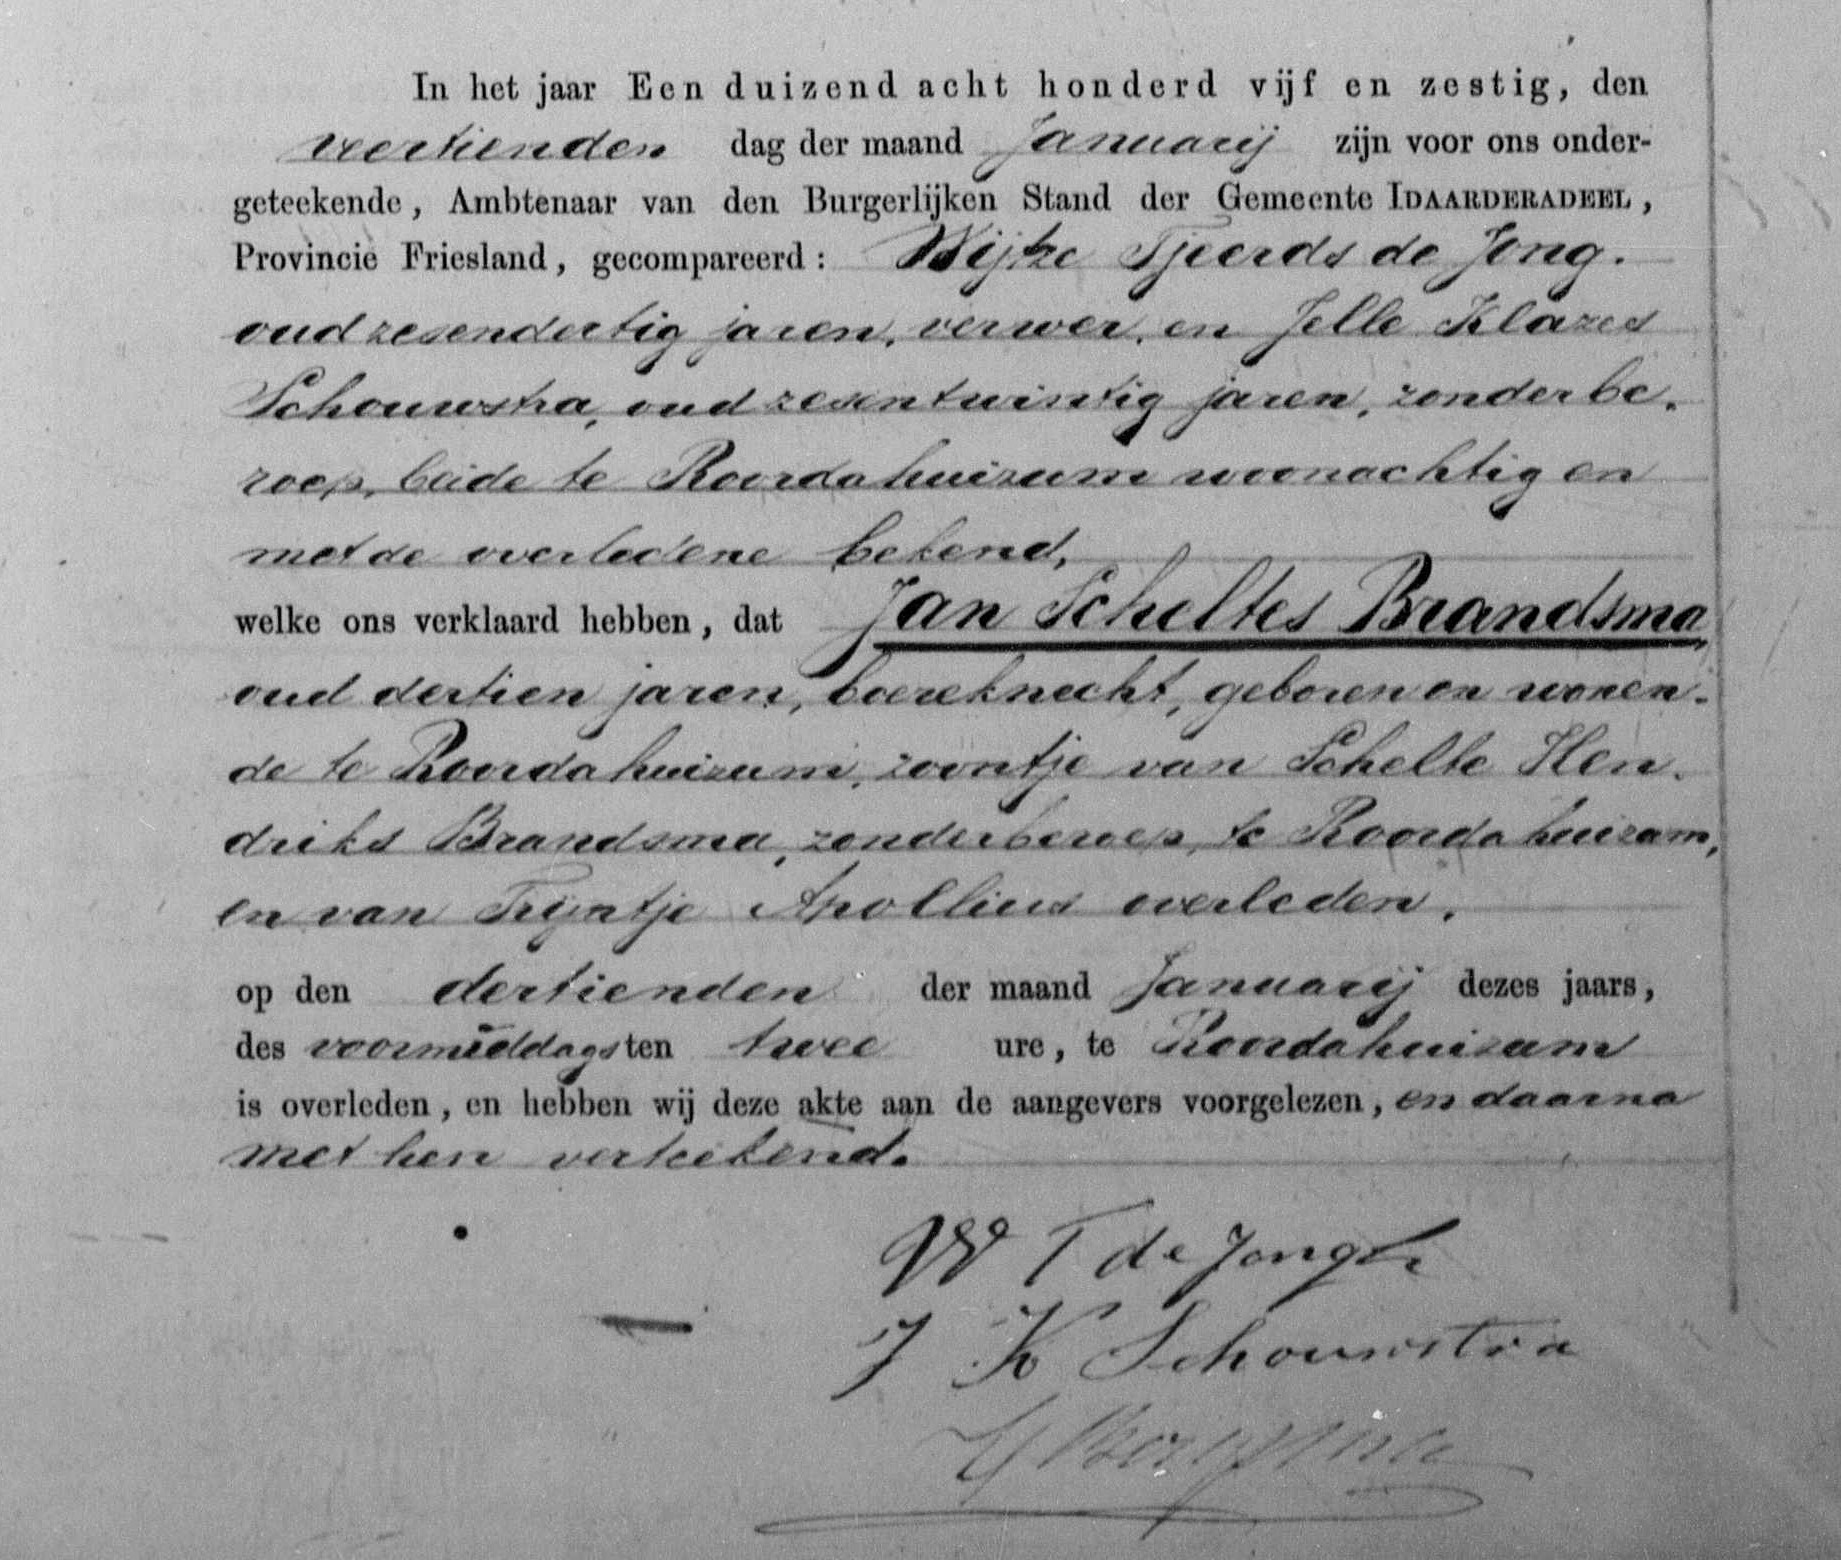 In het jaar Een duizend acht honderd vijf en zestig, den
veertienden dag der maand Januarij zijn voor ons onder-
geteekende, Ambtenaar van den Burgerlijken Stand der Gemeente IDAARDERADEEL,
Provincie Friesland, gecompareerd: Wijtze Tjeerds de Jong.
oud zesendertig jaren, verwer, en Jelle Klazes
Schouwstra, oud zesentwintig jaren, zonder be-
roep, beide te Roordahuizum woonachtig en
met de overledene bekend,
welke ons verklaard hebben, dat Jan Scheltes Brandsma,
oud dertien jaren, boereknecht, geboren en wonen-
de te Roordahuizum, zoontje van Schelte Hen-
driks Brandsma, zonder beroep, te Roordahuizum,
en van Trijntje Apollius overleden.
op den dertienden der maand Januarij dezes jaars,
des voormiddags ten twee ure, te Roordahuizum
is overleden, en hebben wij deze akte aan de aangevers voorgelezen, en daarna
met hen verteekend.
W T de Jongh
J K Schouwstra